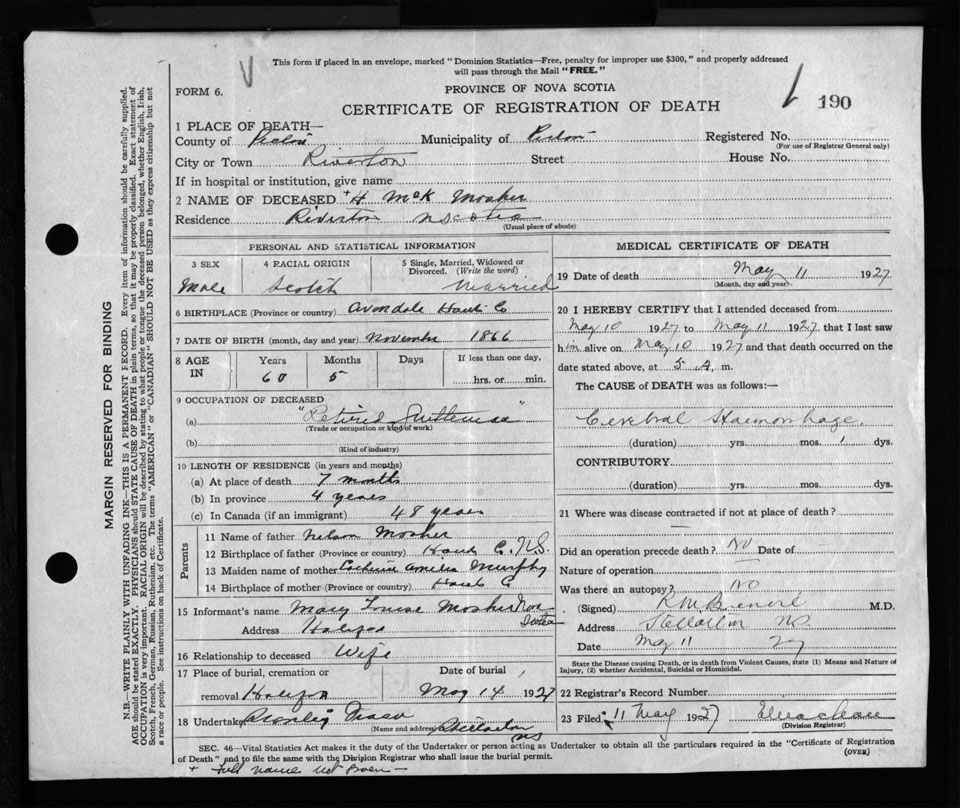 This form if placed in an envelope, marked "Dominion Statistics—Free, penalty for improper use $300," and properly addressed
will pass through the Mail "FREE."
FORM 6.
PROVINCE OF NOVA SCOTIA
CERTIFICATE OF REGISTRATION OF DEATH
190
1 PLACE OF DEATH—
County of Pictou Municipality of Pictou Registered No.
(For use of Registrar General only)
City or Town Riverton Street House No.
If in hospital or institution, give name
2 NAME OF DECEASED + H McK Mosher
Residence Riverton N Scotia
(Usual place of abode)
PERSONAL AND STATISTICAL INFORMATION
3 SEX
Male
4 RACIAL ORIGIN
Scotch
5 Single, Married, Widowed or
Divorced. (Write the word)
Married
6 BIRTHPLACE (Province or country) Avondale Hants Co
7 DATE OF BIRTH (month, day and year) November 1866
8 AGE
IN
Years
60
Months
5
Days
If less than one day,
hrs. or min.
9 OCCUPATION OF DECEASED
(a) "Retired Gentleman"
(Trade or occupation or kind of work)
(b)
(Kind of industry)
10 LENGTH OF RESIDENCE (in years and months)
(a) At place of death 7 months
(b) In province 4 years
(c) In Canada (if an immigrant) 48 years
Parents
11 Name of father Nelson Mosher
12 Birthplace of father (Province or country) Hants C. N.S.
13 Maiden name of mother Amelia Murphy
14 Birthplace of mother (Province or country) Hants C
15 Informant's name Mary Louise Mosher Nova
Scotia
Address Halifax
16 Relationship to deceased Wife
17 Place of burial, cremation or
removal Halifax
Date of burial
May 14 1927
18 Undertaker Stellarton
(Name and address)
NS
MEDICAL CERTIFICATE OF DEATH
19 Date of death May 11 1927
(Month, day and year)
20 I HEREBY CERTIFY that I attended deceased from
May 10 1927 to May 11 1927 that I last saw
him alive on May 10 1927 and that death occurred on the
date stated above, at 5 A. m.
The CAUSE of DEATH was as follows:—
Cerebral Haemorrhage
(duration) yrs. mos. 1 dys.
CONTRIBUTORY
(duration) yrs. mos. dys.
21 Where was disease contracted if not at place of death?
—
Did an operation precede death? No Date of
Nature of operation
Was there an autopsy? No
(Signed) M.D.
Address Stellarton NS.
Date May 11 27
State the Disease causing Death, or in death from Violent Causes, state (1) Means and Nature of
Injury, (2) whether Accidental, Suicidal or Homicidal.
22 Registrar's Record Number
23 Filed 11 May 1927
(Division Registrar)
SEC. 46—Vital Statistics Act makes it the duty of the Undertaker or person acting as Undertaker to obtain all the particulars required in the "Certificate of Registration
of Death" and to file the same with the Division Registrar who shall issue the burial permit.
(OVER)
+ Full name not given —
MARGIN RESERVED FOR BINDING
N.B.—WRITE PLAINLY WITH UNFADING INK—THIS IS A PERMANENT RECORD. Every item of information should be carefully supplied.
AGE should be stated EXACTLY. PHYSICIANS should STATE CAUSE OF DEATH in plain terms, so that it may be properly classified. Exact statement of
OCCUPATION is very important. RACIAL ORIGIN will be described by stating to what people or tongue the deceased person belonged, whether English, Irish,
Scotch, French, German, Russian, Ruthenian, etc. The terms "AMERICAN" or "CANADIAN" SHOULD NOT BE USED as they express citizenship but not
a race or people. See instructions on back of Certificate.